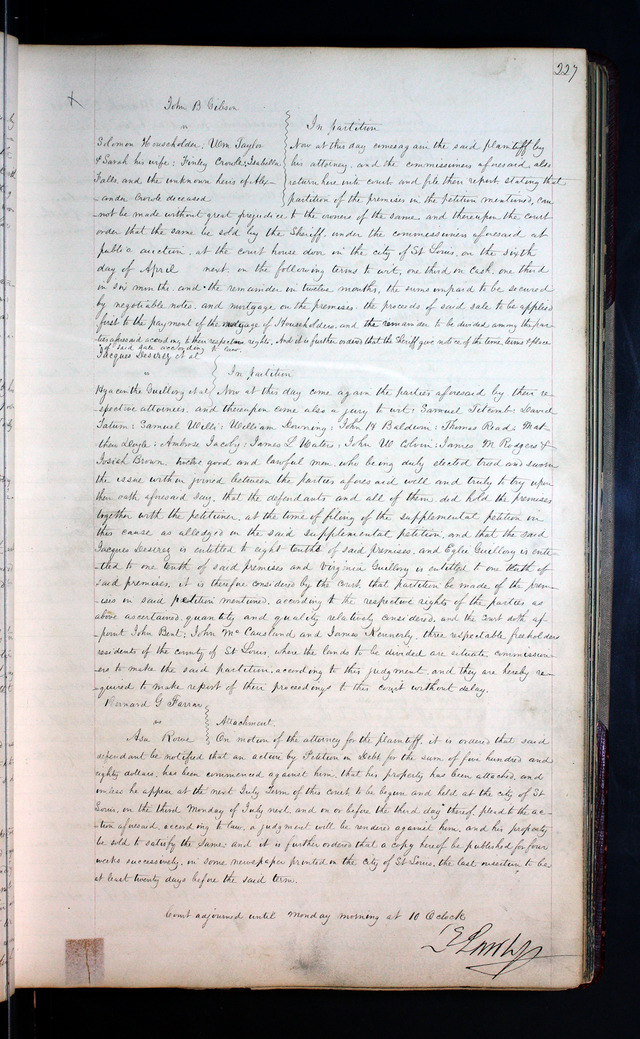 227
John B Gibson
vs
In partition
Solomon Householder, Wm Taylor
& Sarah his wife; Finley Crowle; Isabella
Falls, and the unknown heirs of Alex-
ander Crowle deceased
Now at this day comes again the said plaintiff by
his attorney, and the commissioners aforesaid also
return here into court and file their report stating that
partition of the premises in the petition mentioned, can
not be made without great prejudice to the owners of the same, and thereupon the court
order that the same be sold by the Sheriff, under the commissioners aforesaid at
public auction, at the court house door in the city of St Louis, on the sixth
day of April next, on the following terms to wit, one third in cash, one third
in six months, and the remainder in twelve months, the sums unpaid to be secured
by negotiable notes, and mortgage on the premises, the proceeds of said sale to be applied
first to the payment of the mortgage of Householders, and the remainder to be divided among the par-
ties aforesaid according to their respective rights, And it is further ordered that the Sheriff give notice of the time, terms & place
of said sale according to law.
Jacques Deserez et al
vs
In partition
Hyacinthe Guillory et al
Now at this day come again the parties aforesaid by their re-
spective attornies, and thereupon come also a jury to wit: Samuel Titcomb; David
Tatum; Samuel Willi; William Downing; John H Baldwin; Thomas Read; Mat-
thew Doyle; Ambrose Jacoby; James L Waters; John W Colvin; James M Rodgers &
Josiah Brown, twelve good and lawful men, who being duly elected tried and sworn
the issue within joined between the parties aforesaid well and truly to try upon
their oath aforesaid, say, that the defendants and all of them did hold the premises
together with the petitioner, at the time of filing of the supplemental petition in
this cause as alledged in the said supplemental petition, and that the said
Jacques Deserez is entitled to eight tenths of said premises, and Eglie Guillory is enti-
tled to one tenth of said premises and Virginia Guillory is entitled to one tenth of
said premises, it is therefore considered by the court, that partition be made of the prem-
ises in said petition mentioned, according to the respective rights of the parties as
above ascertained, quantity and quality relatively considered, and the court doth ap-
point John Bent; John McCausland and James Kennerly, three respectable freeholders
residents of the county of St Louis, where the lands to be divided are situate, commission-
ers to make the said partition, according to this judgment, and they are hereby re-
quired to make report of their proceedings to this court without delay.
Bernard G Farrar
vs
Attachment.
Asa Rowe
On motion of the attorney for the plaintiff, it is ordered that said
defendant be notified that an action by Petition in Debt for the sum of five hundred and
eighty dollars, has been commenced against him, that his property has been attached, and
unless he appear at the next July Term of this court to be begun and held at the city of St
Louis, on the third Monday of July next, and on or before the third day thereof, plead to the ac-
tion aforesaid, according to law, a judgment will be rendered against him, and his property
be sold to satisfy the same, and it is further ordered that a copy hereof be published for four
weeks successively, in some newspaper printed in the city of St Louis, the last insertion to be
at least twenty days before the said term.
Court adjourned until Monday morning at 10 O'clock